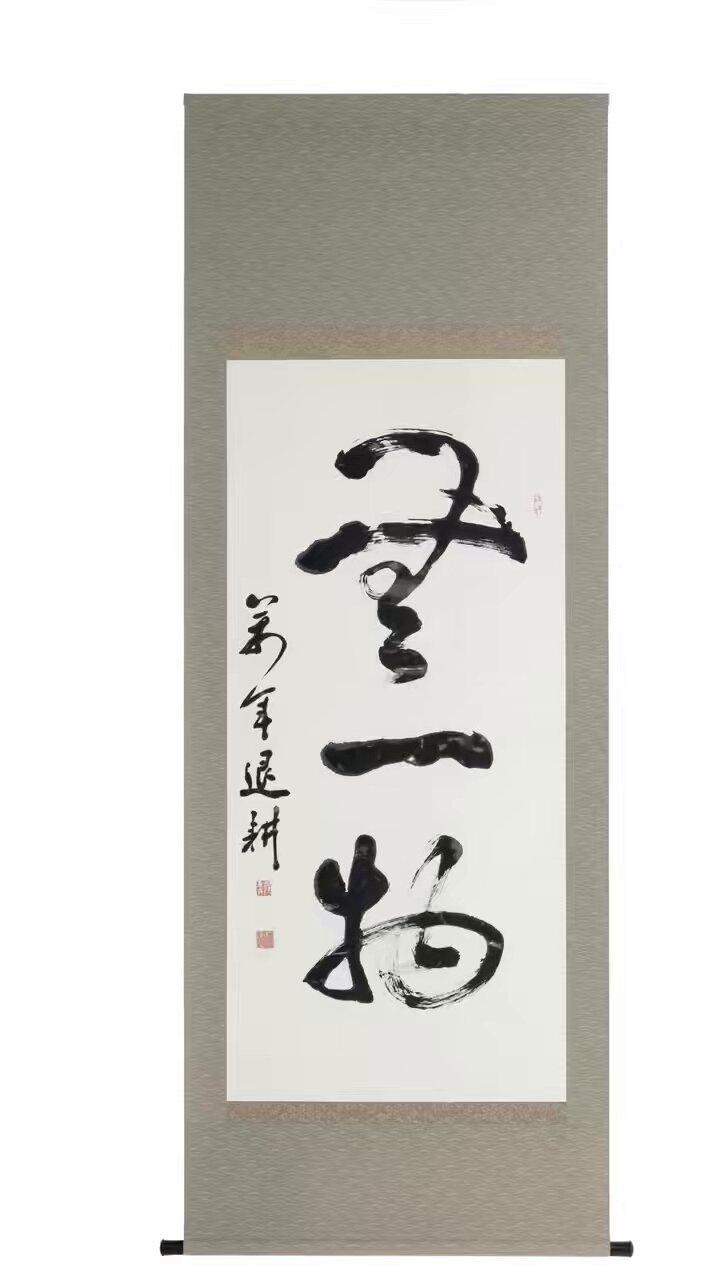 無一物
萬年退耕